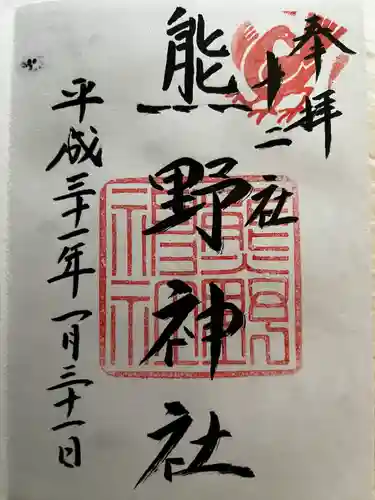 奉拝
十二社
熊野神社
平成三十一年一月三十一日
熊野神社